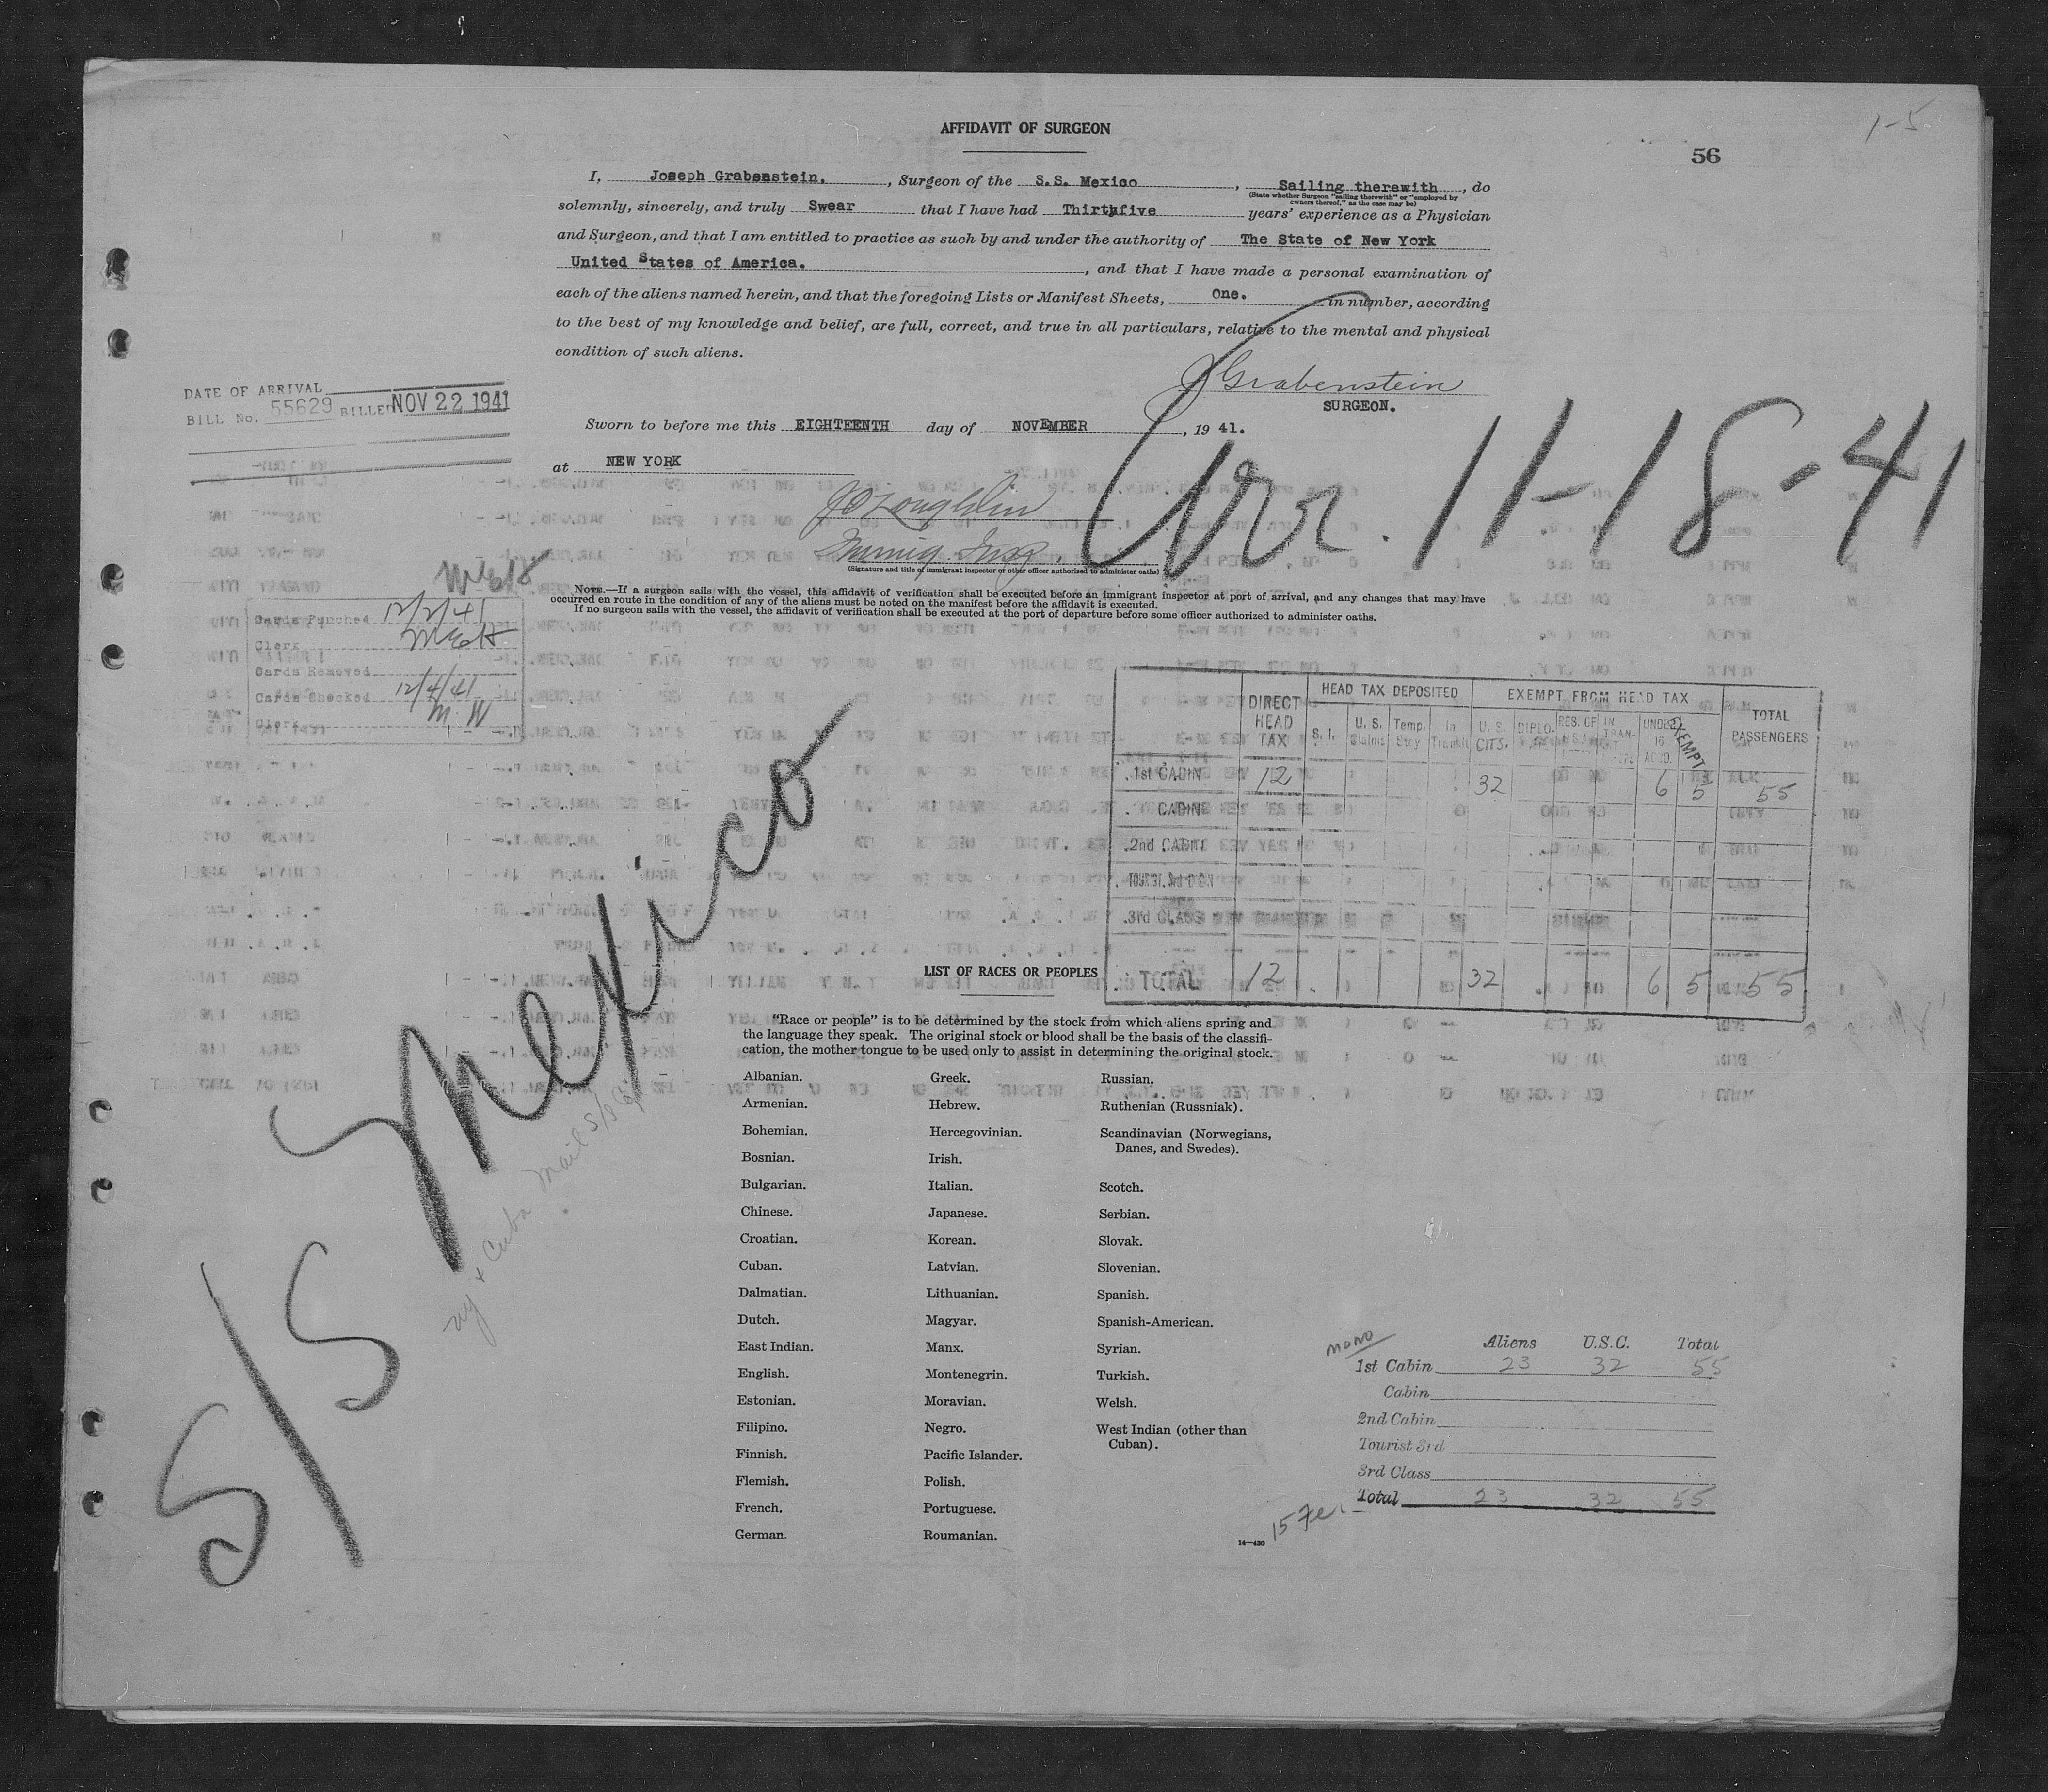 1-5
AFFIDAVIT OF SURGEON
56
I, Joseph Grabenstein. , Surgeon of the S.S. Mexico , Sailing therewith , do
(State whether Surgeon "sailing therewith" or "employed by
owners thereof," as the case may be)
solemnly, sincerely, and truly Swear that I have had Thirthfive years' experience as a Physician
and Surgeon, and that I am entitled to practice as such by and under the authority of The State of New York
United States of America. , and that I have made a personal examination of
each of the aliens named herein, and that the foregoing Lists or Manifest Sheets, One. in number, according
to the best of my knowledge and belief, are full, correct, and true in all particulars, relative to the mental and physical
condition of such aliens.
J Grabenstein
SURGEON.
DATE OF ARRIVAL
BILL No. 55629 BILLED NOV 22 1941
Sworn to before me this EIGHTEENTH day of NOVEMBER , 19 41.
at NEW YORK
Arr. 11-18-41
J O'Loughlin
Immig. Insp.
(Signature and title of immigrant inspector or other officer authorized to administer oaths)
NOTE.—If a surgeon sails with the vessel, this affidavit of verification shall be executed before an immigrant inspector at port of arrival, and any changes that may have
occurred en route in the condition of any of the aliens must be noted on the manifest before the affidavit is executed.
If no surgeon sails with the vessel, the affidavit of verification shall be executed at the port of departure before some officer authorized to administer oaths.
Cards Punched 12/2/41
Clerk
Cards Removed
Cards Checked 12/4/41
Clerk M. W
DIRECT HEAD TAX
HEAD TAX DEPOSITED
EXEMPT FROM HEAD TAX
TOTAL PASSENGERS
S. I. U. S. Claims Temp. Stay In Transit U. S. CITS. DIPLO. RES. OF U.S.A. IN TRANSIT UNDER 16 ACCD. EXEMPT
1st CABIN 12 32 6 5 55
CABIN
2nd CABIN
TOURIST 3rd CABIN
3rd CLASS
TOTAL 12 32 6 5 55
S/S Mexico
ny & Cuba Mail S/S Co
LIST OF RACES OR PEOPLES
"Race or people" is to be determined by the stock from which aliens spring and
the language they speak. The original stock or blood shall be the basis of the classifi-
cation, the mother tongue to be used only to assist in determining the original stock.
Albanian.
Armenian.
Bohemian.
Bosnian.
Bulgarian.
Chinese.
Croatian.
Cuban.
Dalmatian.
Dutch.
East Indian.
English.
Estonian.
Filipino.
Finnish.
Flemish.
French.
German.
Greek.
Hebrew.
Hercegovinian.
Irish.
Italian.
Japanese.
Korean.
Latvian.
Lithuanian.
Magyar.
Manx.
Montenegrin.
Moravian.
Negro.
Pacific Islander.
Polish.
Portuguese.
Roumanian.
Russian.
Ruthenian (Russniak).
Scandinavian (Norwegians,
Danes, and Swedes).
Scotch.
Serbian.
Slovak.
Slovenian.
Spanish.
Spanish-American.
Syrian.
Turkish.
Welsh.
West Indian (other than
Cuban).
14—430
mono
Aliens U.S.C. Total
1st Cabin 23 32 55
Cabin
2nd Cabin
Tourist 3rd
3rd Class
Total 23 32 55